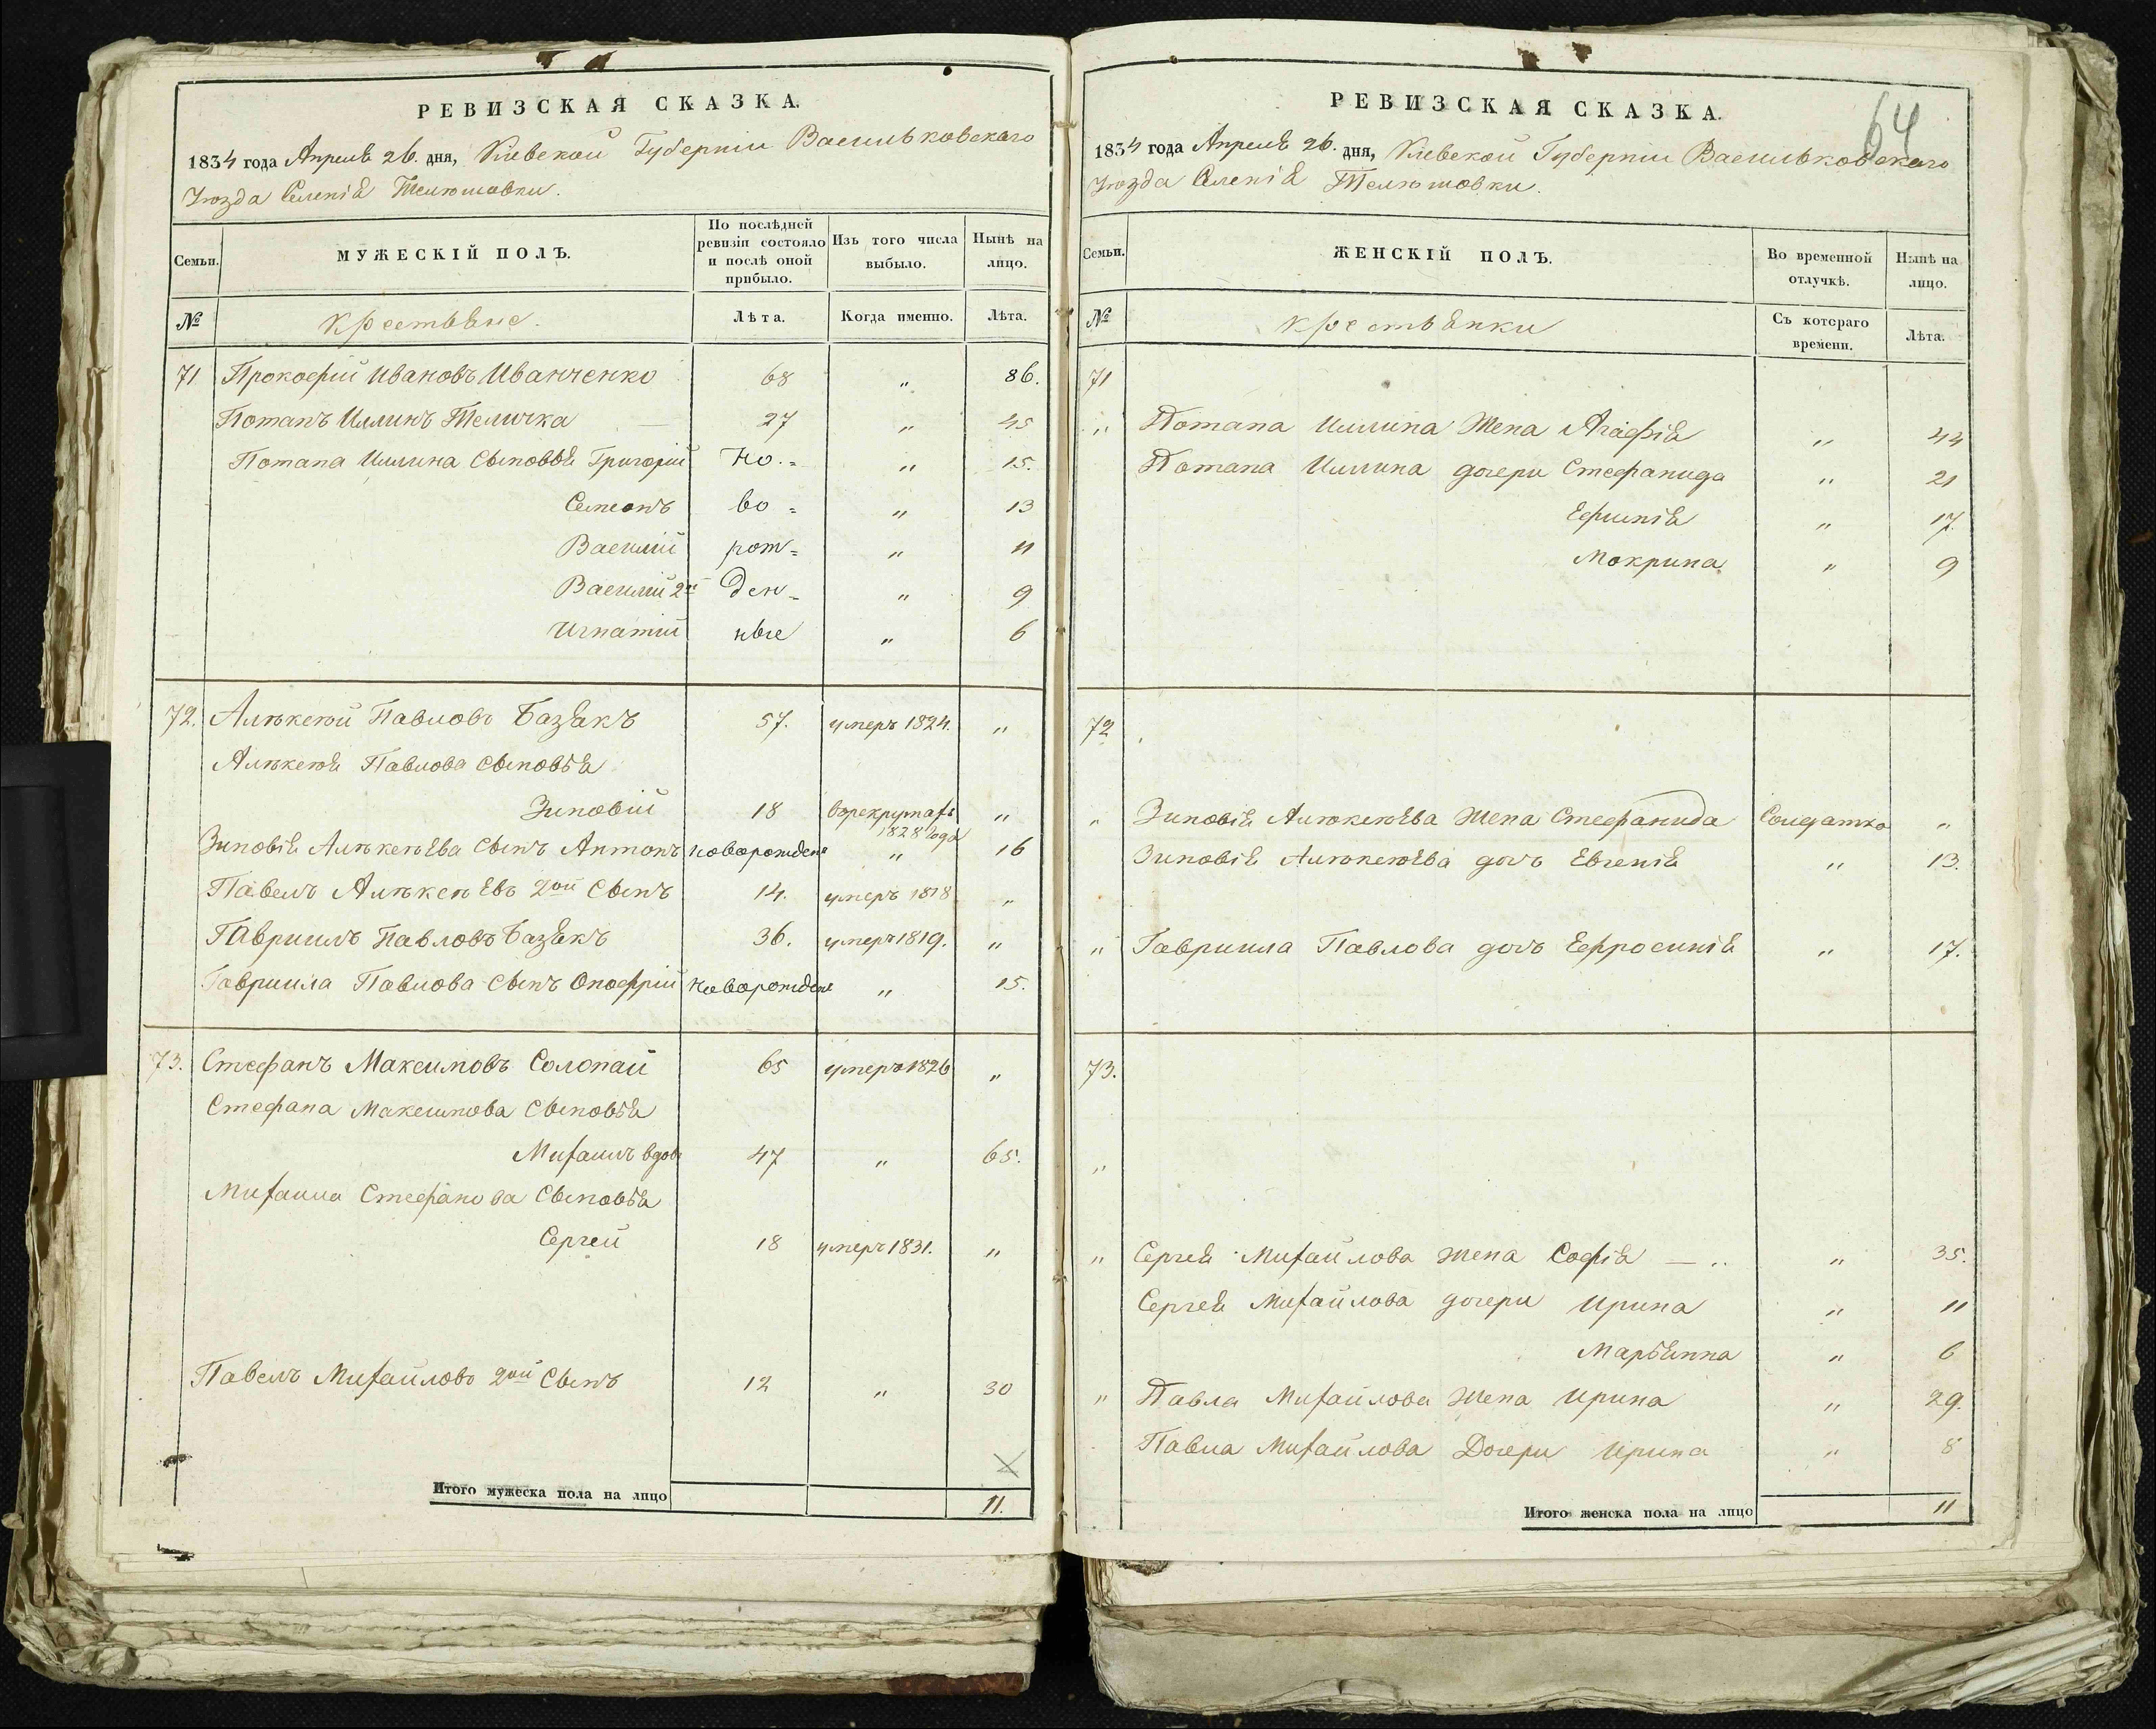 РЕВИЗСКАЯ СКАЗКА.
1834 года Апреля 26. дня, Киевской Губернии Васильковского
Уѣзда Селенія Телѣшовки.
Семьи.
МУЖЕСКІЙ ПОЛЪ.
По послѣдней ревизіи состояло и послѣ оной прибыло.
Изъ того числа выбыло.
Нынѣ на лицо.
№
Крестьяне.
Лѣта.
Когда именно.
Лѣта.
71 Прокофій Ивановъ Иванченко 68 „ 86.
Потапъ Иллинъ Теличка 27 „ 45
Потапа Иллина сыновья Григорій Но- „ 15.
Семенъ во- „ 13
Василий рож- „ 11
Василий 2й ден- „ 9
Игнатий ные „ 6
72. Алѣксѣй Павловъ Базякъ 57. умеръ 1824. „
Алѣксѣя Павлова сыновья
Зиновій 18 в рекрутахъ 1828 года „
Зиновія Алѣксѣева сынъ Антонъ новорожден „ 16
Павелъ Алѣксѣевъ 2ой сынъ 14. умеръ 1818 „
Гавриилъ Павловъ Базякъ 36. умеръ 1819. „
Гавриила Павлова сынъ Онофрій новорожден „ 15.
73. Стефанъ Максимовъ Солопай 65 умеръ 1826 „
Стефана Максимова сыновья
Михаилъ вдов 47 „ 65.
Михаила Стефанова сыновья
Сергей 18 умеръ 1831. „
Павелъ Михайловъ 2ой сынъ 12 „ 30
Итого мужеска пола на лицо 11.
64
РЕВИЗСКАЯ СКАЗКА.
1834 года Апреля 26. дня, Киевской Губерніи Васильковского
Уѣзда Селенія Телѣшовки.
Семьи.
ЖЕНСКІЙ ПОЛЪ.
Во временной отлучкѣ.
Нынѣ на лицо.
№
Крестьянки
Съ котораго времени.
Лѣта.
71
„ Потапа Иллина жена Агафія „ 44
Потапа Иллина дочери Стефанида „ 21
Ефимія „ 17.
Мокрина „ 9
72
„ Зиновія Алѣксѣева жена Стефанида Солдатка „
Зиновія Алѣксѣева дочь Евгенія „ 13.
„ Гавриила Павлова дочь Ефросинія „ 17.
73.
„
„ Сергея Михайлова жена Софія — „ „ 35.
Сергея Михайлова дочери Ирина „ 11
Марьянна „ 6
„ Павла Михайлова жена Ирина „ 29.
Павла Михайлова Дочери Ирина „ 8
Итого женска пола на лицо 11